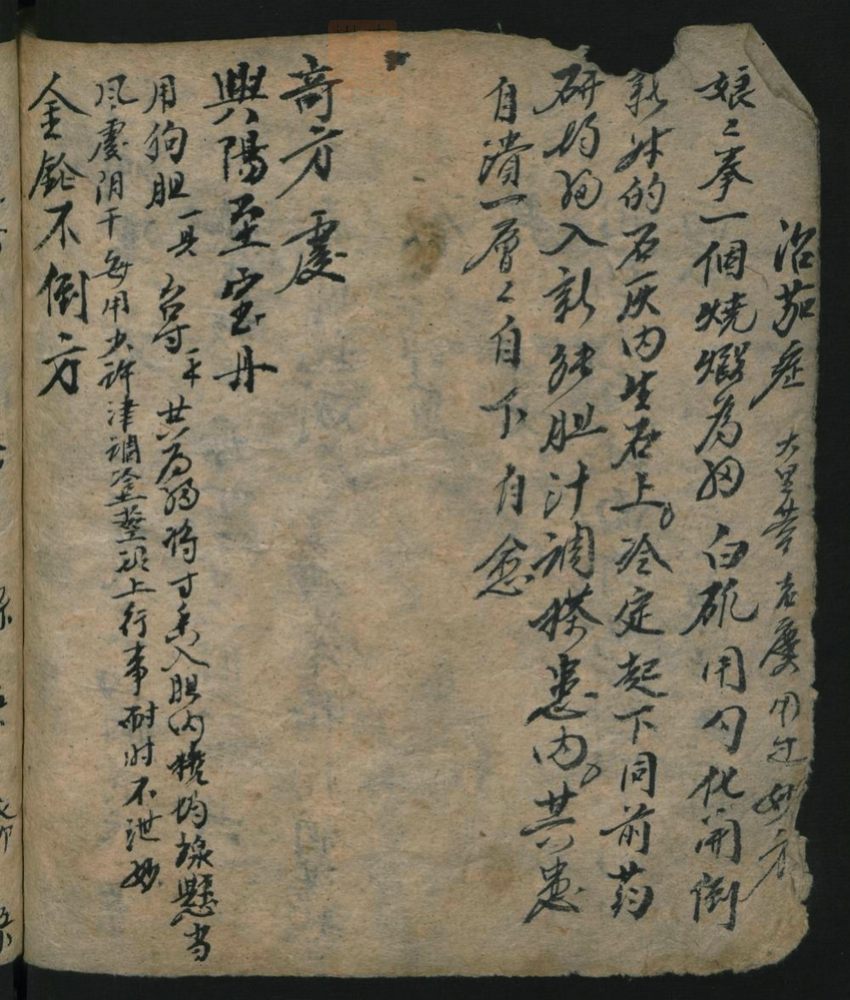 治茄症 大黑茄 老慶用过妙方
娘〻拳一個燒煆為細 白矾用勺化開倒
新𭃂的石灰内生石上。冷定起下同前药
研均細入新猪胆汁調搽患内。其患
自潰一層〻自下自愈
竒方 䖏
興陽至宝丹
用狗胆 一具 台寸 共為細将寸香入胆内攪均線懸当
風䖏阴干每用少許津調塗莖頭上行事耐时不泄妙
金鎗不倒方